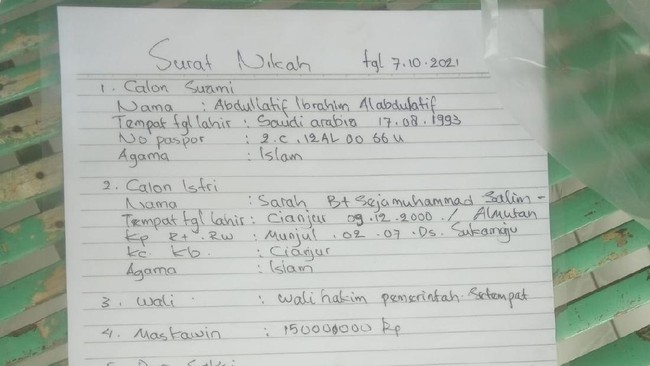 Surat Nikah tgl 7.10.2021
1. Calon Suami
Nama : Abdullatif Ibrahim Alabdulatif
Tempat tgl lahir : Saudi arabia 17.08.1993
No paspor : 2.C.12AL 00 66 U
Agama : Islam
2. Calon Istri
Nama : Sarah Bt Sejamuhammad Salim -
Tempat tgl lahir : Cianjur 09.12.2000 / Almutan
Kp Rt. Rw : Munjul . 02 . 07 . Ds. Sukamaju
Kc. Kb. : Cianjur
Agama : Islam
3. Wali : Wali hakim pemerintah setempat
4. Maskawin : 15000.000 Rp